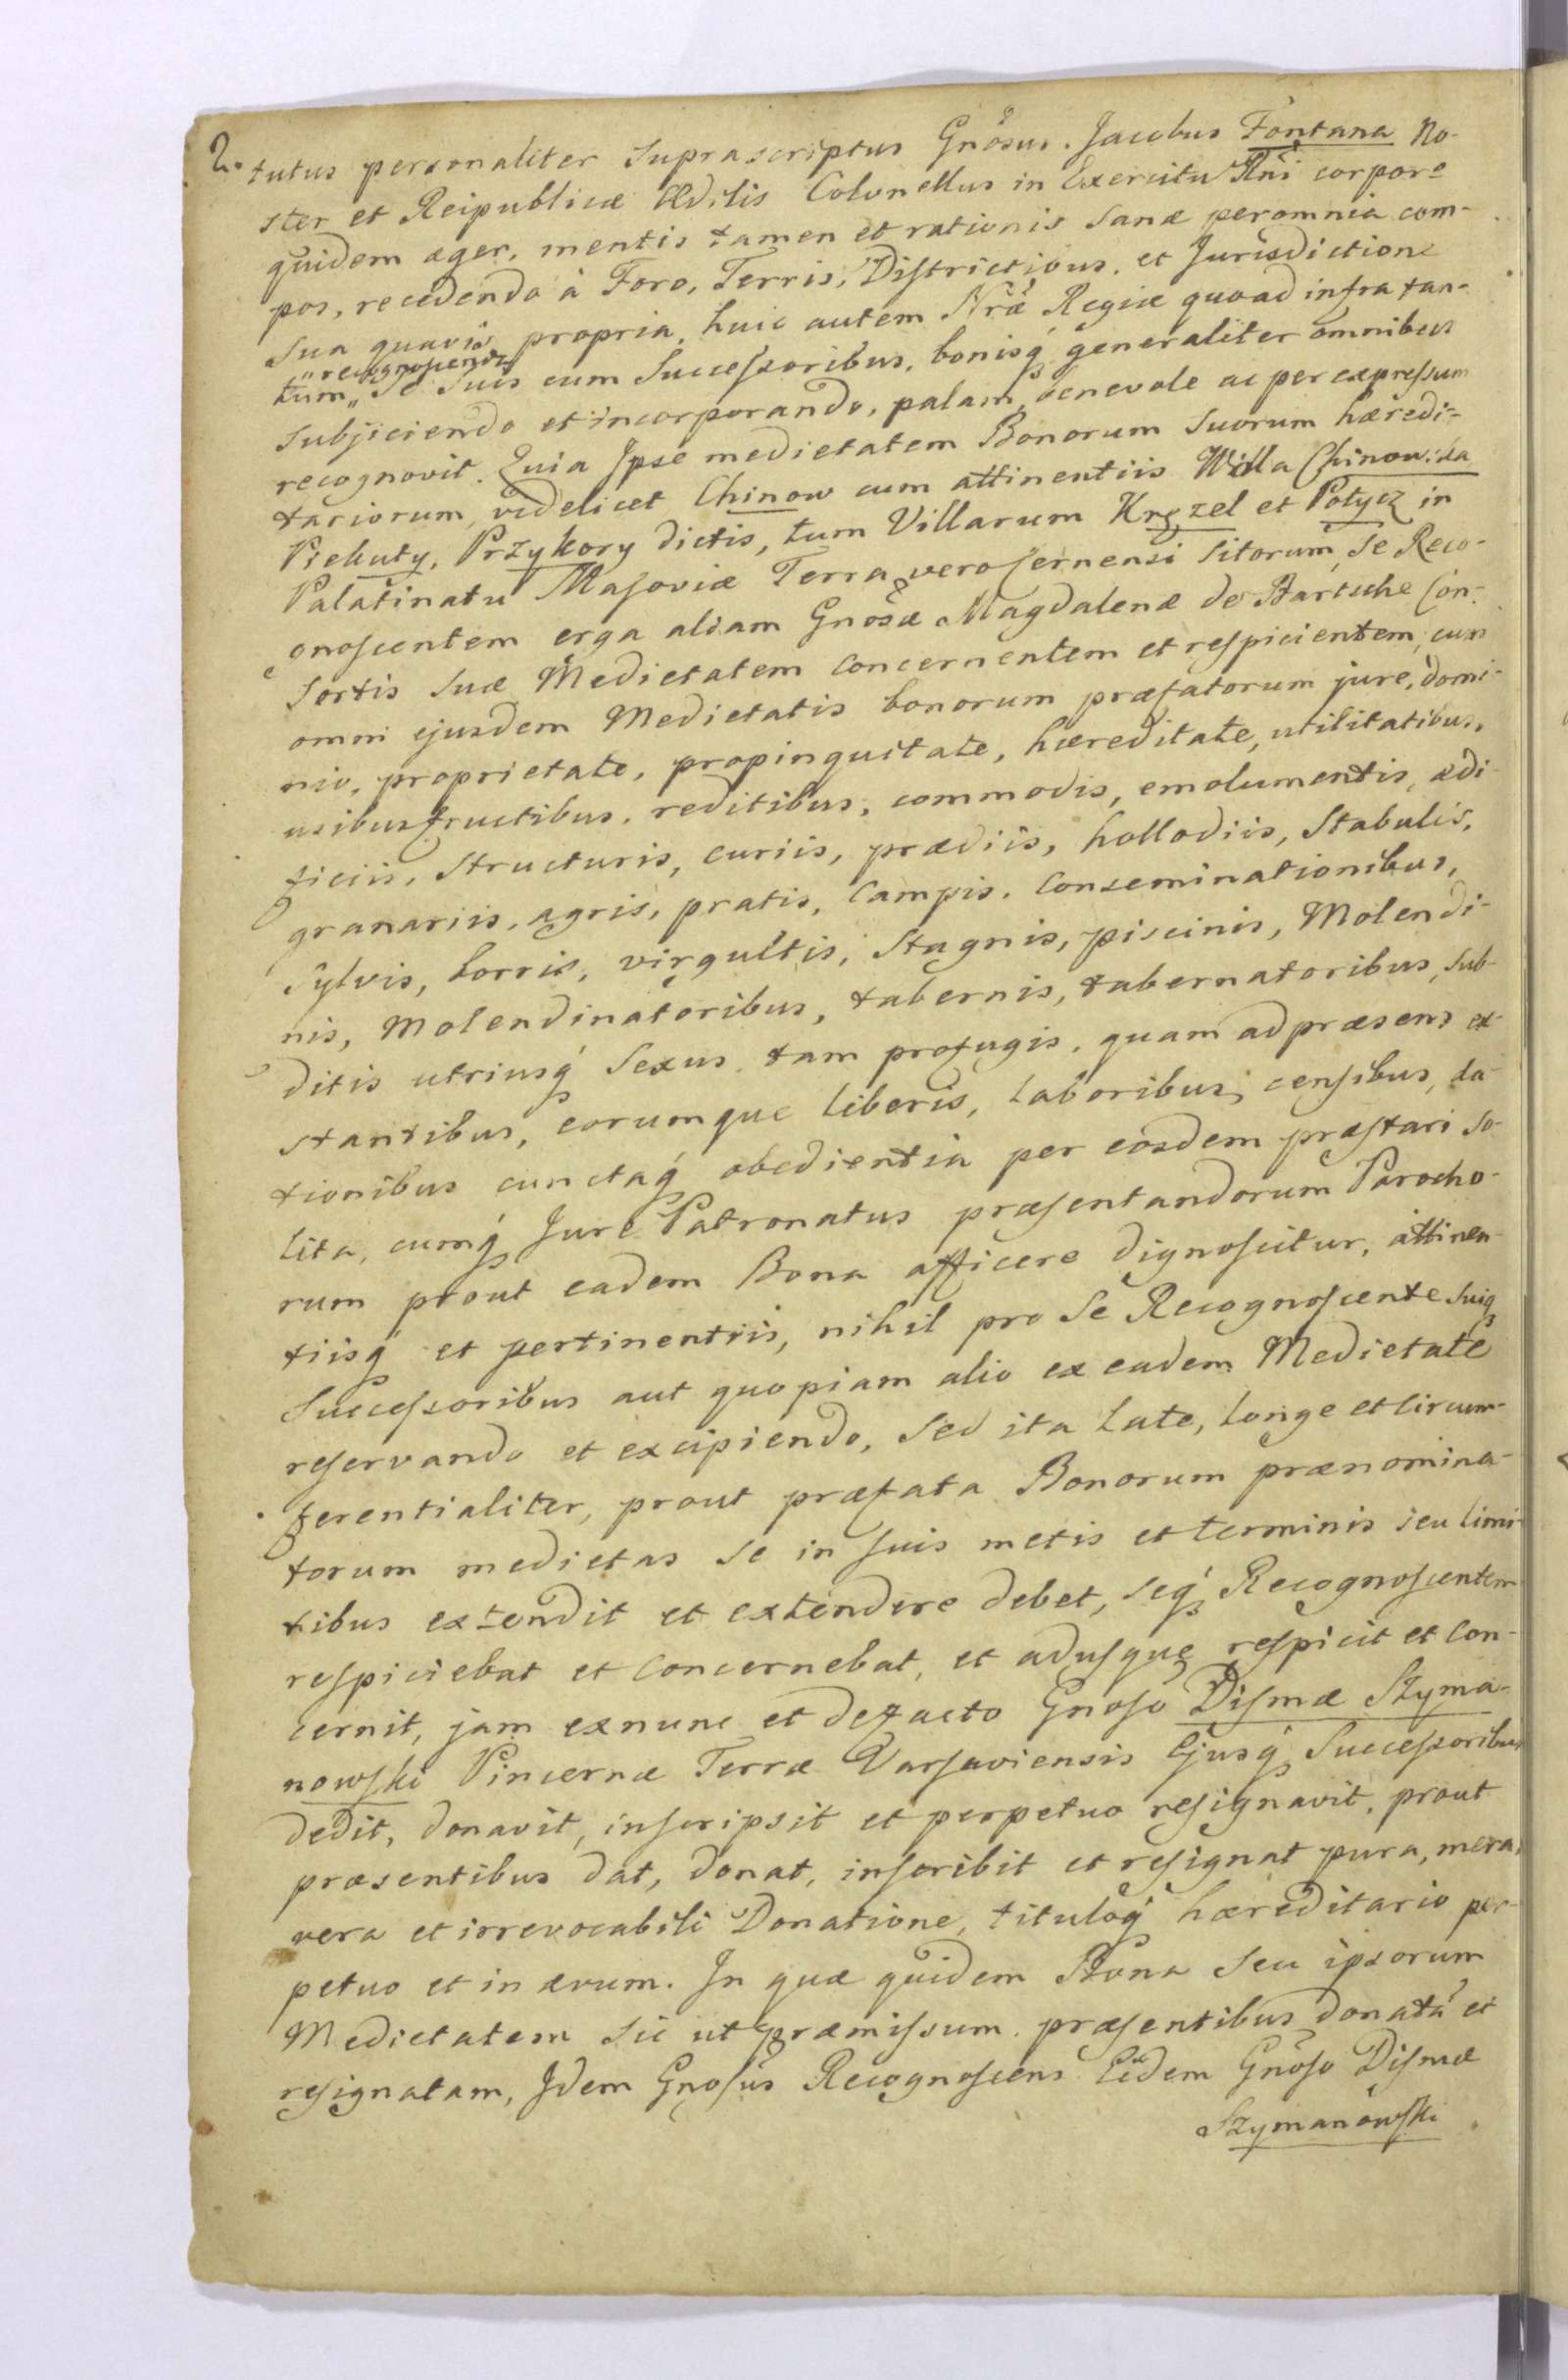 2. tutus personaliter Suprascriptus Gnosus. Jacobus Fontana No-
ster et Reipublicæ Ædilis Colonellus in Exercitu Rni corpore
quidem æger, mentis tamen et rationis Sanæ peromnia com-
pos, recedendo à Foro, Terris, Districtibus, et Jurisdictione
Sua quavis propria, huic autem Nræ Regiæ quoad infra tan-
"recognoscendu
tum „ Se Suis cum Successoribus, bonisq́ generaliter omnibus
Subjiciendo et incorporando, palam, benevole ac per expressum
recognovit. Quia Ipse medietatem Bonorum Suorum hæredi-
tariorum, videlicet Chinow cum attinentiis Willa Chinow:ska
Piekuty, Przykory dictis, tum Villarum Kręzel et Potycz in
Palatinatu Masoviæ Terra vero Cernensi Sitorum, Se Reco-
gnoscentem erga aliam Gnosæ Magdalenæ de Bartsche Con-
Sortis Suæ Medietatem concernentem et respicientem, cum
omni ejusdem Medietatis bonorum præfatorum jure, domi-
nio, proprietate, propinquitate, hæreditate, utilitatibus,
usibus fructibus, reditibus, commodis, emolumentis, ædi-
ficiis, Structuris, curiis, prædiis, hollodiis, Stabulis,
granariis, agris, pratis, Campis, Conseminationibus,
Sylvis, borris, virgultis, Stagnis, piscinis, Molendi-
nis, Molendinatoribus, tabernis, tabernatoribus, Sub-
ditis utriusq́ Sexus tam profugis, quam ad præsens ex-
stantibus, eorumque liberis, laboribus, censibus, da-
tionibus cunctaq́ obedientia per eosdem præstari so-
lita, cumq́ Jure Patronatus præsentandorum Parocho-
rum prout eadem Bona afficere dignoscitur, attinen-
tiisq́ et pertinentiis, nihil pro Se Recognoscente Suisq
Successoribus aut quopiam alio ex eadem Medietate
reservando et excipiendo, Sed ita Late, Longe et Circum-
ferentialiter, prout præfata Bonorum prænomina-
torum medietas Se in Suis metis et terminis seu limi-
tibus extendit et extendere debet, seq́ Recognoscentem
respiciebat et Concernebat, et adusque respicit et Con-
cernit, jam exnunc et defacto Gnoso Dismæ Szyma-
nowski Pincernæ Terræ Varsaviensis Ejusq́ Successoribus
dedit, donavit, inscripsit et perpetuo resignavit, prout
præsentibus dat, donat, inscribit et resignat pura, mera,
vera et irrevocabili Donatione, tituloq́ hæreditario per-
petuo et in ævum. In quæ quidem Bona Seu ipsorum
Medietatem Sic ut præmissum præsentibus donatã et
resignatam, Idem Gnosus Recognoscens Eidem Gnoso Dismæ
Szymanowski